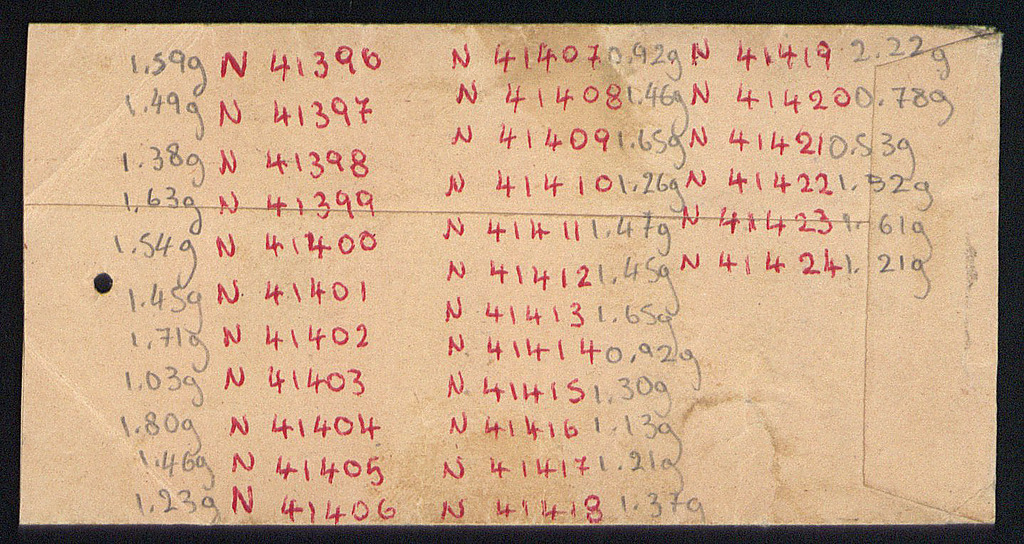 1.59g N 41396
1.49g N 41397
1.38g N 41398
1.63g N 41399
1.54g N 41400
1.45g N 41401
1.71g N 41402
1.03g N 41403
1.80g N 41404
1.46g N 41405
1.23g N 41406
N 41407 0.92g
N 41408 1.46g
N 41409 1.65g
N 41410 1.26g
N 41411 1.47g
N 41412 1.45g
N 41413 1.65g
N 41414 0.92g
N 41415 1.30g
N 41416 1.13g
N 41417 1.21g
N 41418 1.37g
N 41419 2.22g
N 41420 0.78g
N 41421 0.53g
N 41422
N 41423 1.61g
N 41424 1.21g